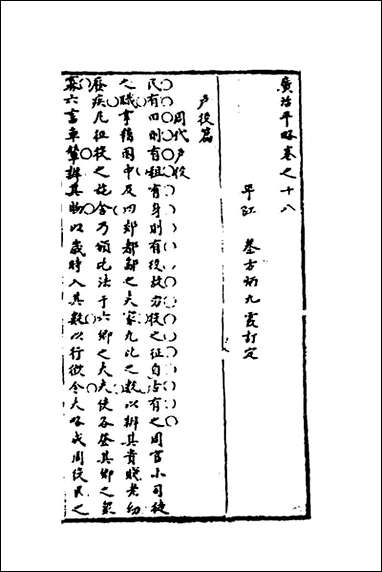 廣治平略卷之十八
平江 蔡方炳九霞訂定
戶役篇
周代戶役
民有田則有租有身則有役故力役之征自古有之周官小司徒
之職掌稽國中及四郊都鄙之夫家九比之數以辨其貴賤老幼
癈疾凡征役之施舍乃頒比法于六鄉之大夫使各登其鄉之眾
寡六畜車輦辨其物以歲時入其數以行徵令大略成周役民之